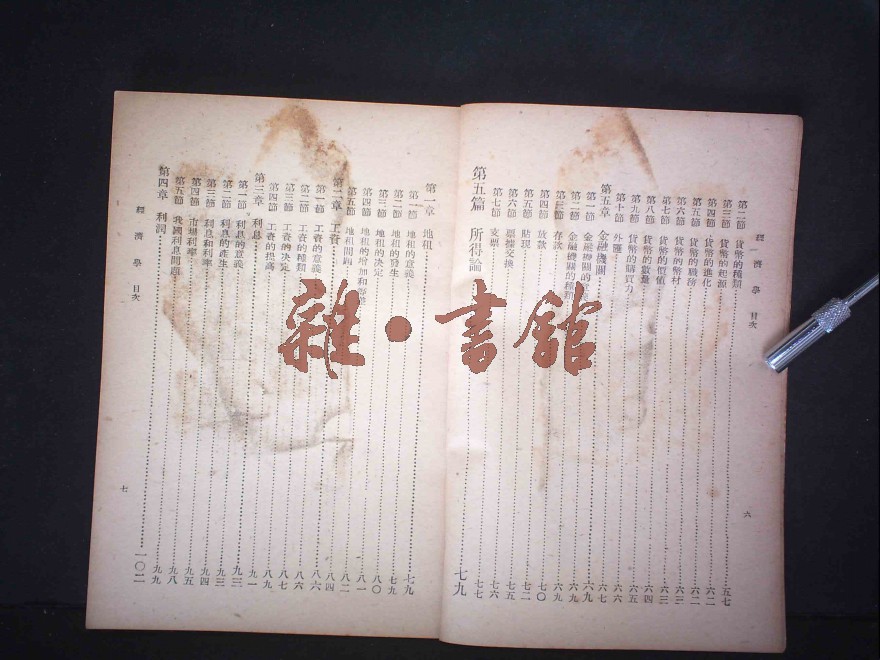 經濟學 目次
第二節 貨幣的種類 五七
第三節 貨幣的起源 六二
第四節 貨幣的進化 六二
第五節 貨幣的職務 六二
第六節 貨幣的幣材 六三
第七節 貨幣的價值 六三
第八節 貨幣的數量 六四
第九節 貨幣的購買力 六五
第十節 外匯 六六
第五章 金融機關 六七
第一節 金融機關的意 六九
第二節 金融機關的種類 六九
第三節 存款 六九
第四節 放款 七〇
第五節 貼現 七二
第六節 票據交換 七五
第七節 支票 七六
第五篇 所得論 七九
六
第一章 地租 七九
第一節 地租的意義 七九
第二節 地租的發生 七九
第三節 地租的決定 八〇
第四節 地租的增加和 八一
第五節 地租問題 八二
第二章 工資 八四
第一節 工資的意義 八六
第二節 工資的種類 八六
第三節 工資的決定 八七
第四節 工資的提高 八九
第三章 利息 九一
第一節 利息的意義 九三
第二節 利息的產生 九三
第三節 利息和利率 九四
第四節 市場利率 九五
第五節 我國利息問題 九八
第四章 利潤 一〇二
經濟學 目次
七
雜·書館